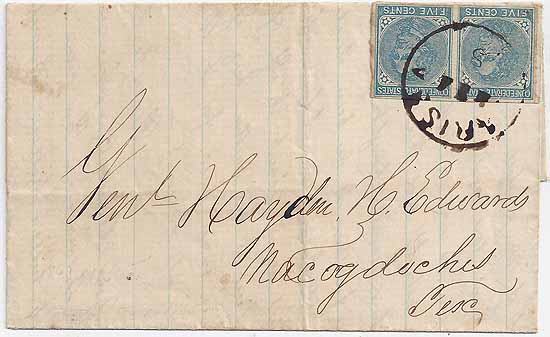 FIVE CENTS FIVE CENTS
CONFEDERATE STATES CONFEDERATE STATES
PARIS
Genl Haydn. H. Edwards
Nacogdoches
Tex